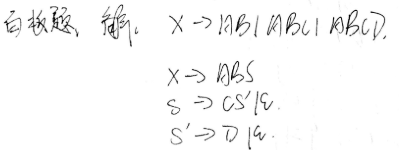 白板题, 解. X → AB | ABC | ABCD.
X → ABS
S → CS' | ε.
S' → D | ε.